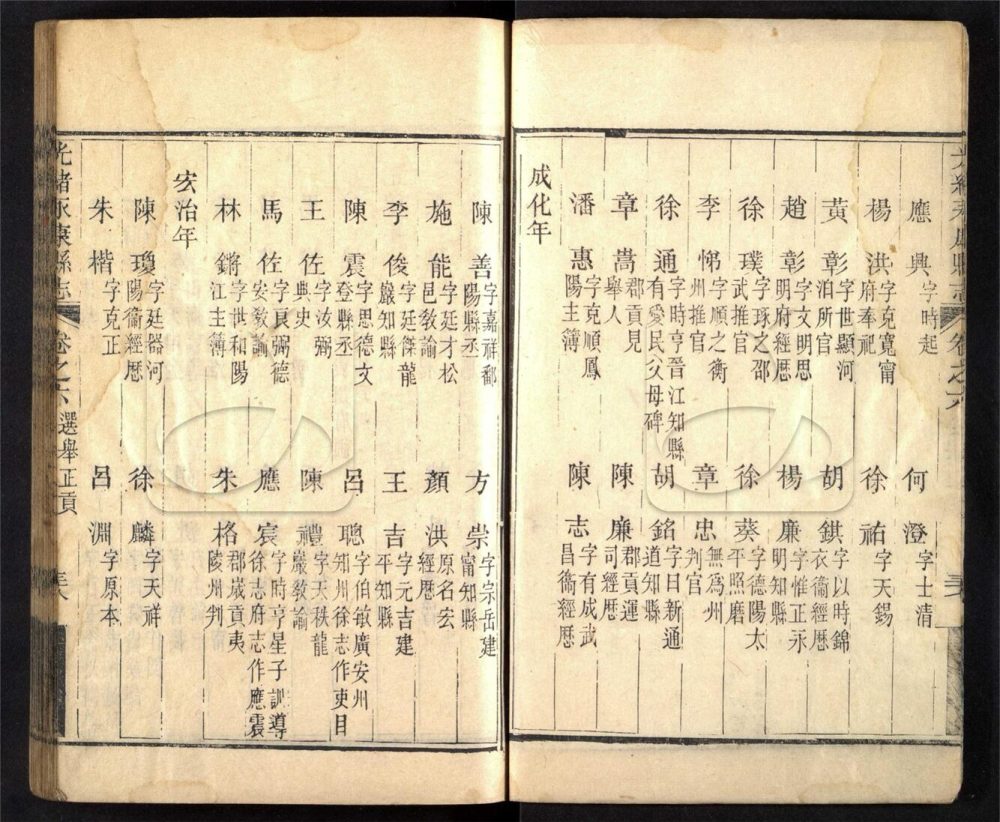 應典 字時起 何澄 字士清
楊洪 字克寬甯府奉祀 徐祐 字天錫
黃彰 字世顯河泊所官 胡鉷 字以時錦衣衞經歷
趙彰 字文明思明府經歷 楊廉 字惟正永明知縣
徐璞 字琢之邵武推官 徐葵 字德陽太平照磨
李悌 字順之衡州推官 章忠 無為州判官
徐通 字時亨晉江知縣有愛民父母碑 胡銘 字日新通道知縣
章嵩 郡貢見舉人 陳廉 郡貢運司經歷
潘惠 字克順鳳陽主簿 陳志 字有成武昌衞經歷
成化年
陳善 字嘉祥鄱陽縣丞 方崇 字宗岳建甯知縣
施能 字廷才松邑敎諭 顏洪 原名宏經歷
李俊 字廷傑龍巖知縣 王吉 字元吉建平知縣
陳震 字思德文登縣丞 呂聰 字伯敏廣安州知州徐志作吏目
王佐 字汝弼典史 陳禮 字天秩龍巖敎諭
馬佐 字良弼德安敎諭 應宸 字時亨星子訓導徐志府志作應震
林鏘 字世和陽江主簿 朱格 郡歲貢夷陵州判
宏治年
陳瓊 字廷器河陽衞經歷 徐麟 字天祥
朱楷 字克正 呂淵 字原本
光緒永康縣志 卷之六 選舉正貢